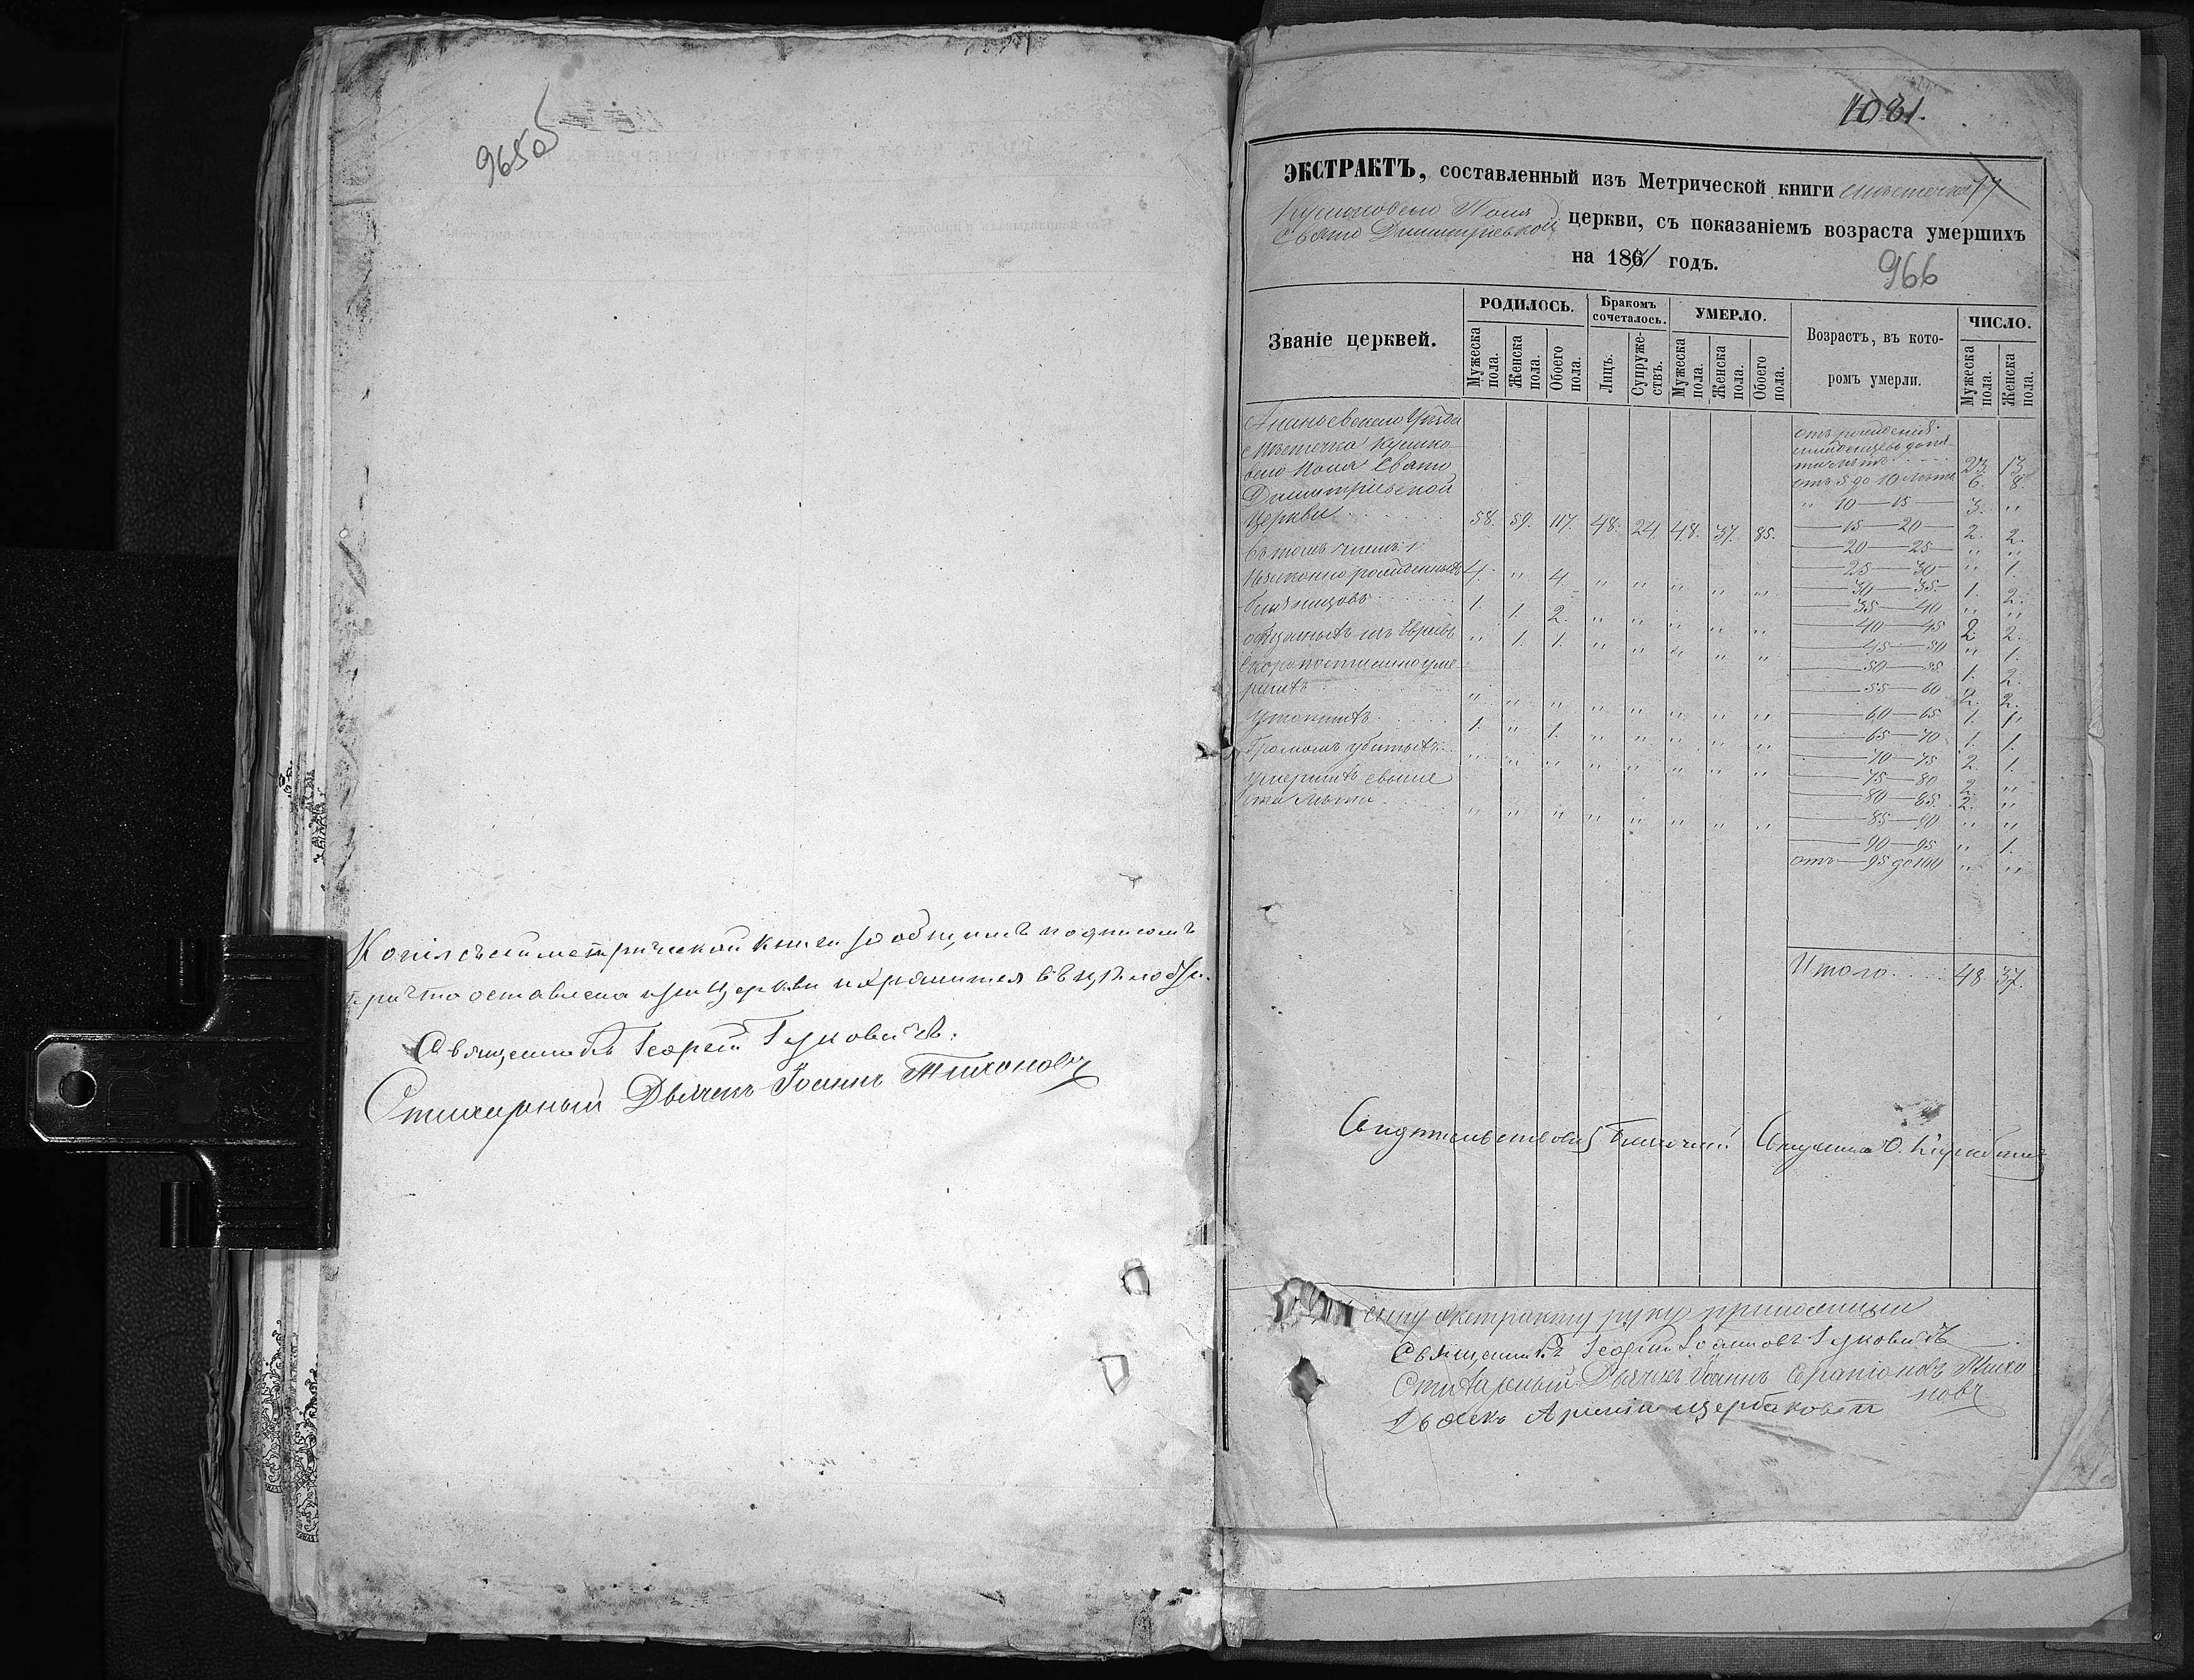 965об
Копія съ сей метрической книги за общимъ подписомъ
причта оставлена при Церкви и хранится въ цѣлости.
Священникъ Георгій Гулковичъ.
Стихарный Дьячекъ Іоаннъ Тихоновъ
1031.
ЭКСТРАКТЪ, составленный изъ Метрической книги мѣстечка
Поля
Свято Димитріевской церкви, съ показаніемъ возраста умершихъ
на 1861 годъ.
966
Званіе церквей.
РОДИЛОСЬ.
Бракомъ сочеталось.
УМЕРЛО.
Возрастъ, въ которомъ умерли.
ЧИСЛО.
Мужеска пола.
Женска пола.
Обоего пола.
Лицъ.
Супружествъ.
Мужеска пола.
Женска пола.
Обоего пола.
Мужеска пола.
Женска пола.
Ананьевскаго Уѣзда
мѣстечка
Поля Свято
Димитріевской
Церкви 58. 59. 117. 48. 24. 48. 37. 85.
Въ томъ числѣ:
Незаконнорожденныхъ 4. " 4. " " " " "
близнецовъ 1. 1. 2. " " " " "
изъ Евреевъ " 1. 1. " " " " "
Скоропостижно умершихъ " " " " " " " "
Утопшихъ 1. " 1. " " " " "
Громомъ убитыхъ " " " " " " " "
Умершихъ свыше
ста лѣтъ " " " " " " " "
отъ рожденія
младенцевъ до пяти лѣтъ 23. 13.
отъ 5 до 10 лѣтъ 6. 8.
" 10 — 15 — 3. "
— 15 — 20 — 2. 2.
— 20 — 25 — " "
— 25 — 30 — " 1.
— 30 — 35 — 1. 2.
— 35 — 40 " "
— 40 — 45 2. 2.
— 45 — 50 " 1.
— 50 — 55 1. 2.
— 55 — 60 2. 2.
— 60 — 65 1. 1.
— 65 — 70 1. 1.
— 70 — 75 2. 1.
— 75 — 80 2. "
— 80 — 85. 2. "
— 85 — 90 " "
— 90 — 95 " 1.
отъ — 95 до 100 " "
Итого 48. 37.
Свидѣтельствовалъ Благочинный Священникъ
сему экстракту руку приложили
Священникъ Георгій Іоанновъ Гулковичъ
Стихарный Дьячекъ Іоаннъ Серапіоновъ Тихо
новъ
Дьячекъ Щербаковъ